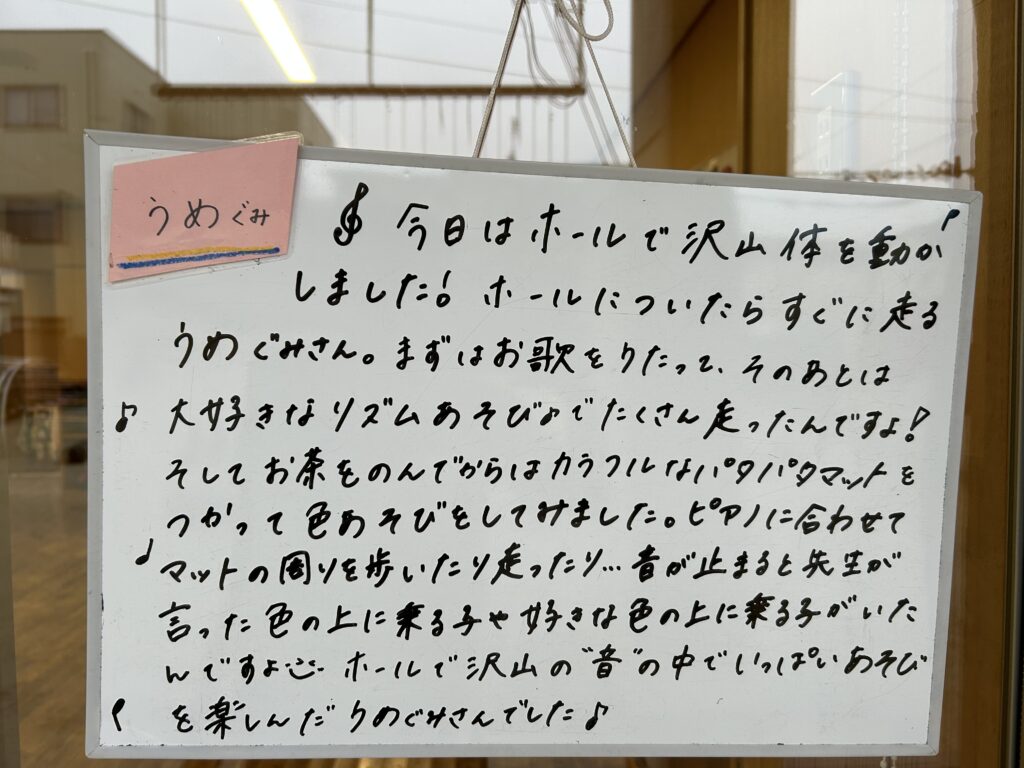 うめぐみ
今日はホールで沢山体を動か
しました! ホールについたらすぐに走る
うめぐみさん。まずはお歌をうたって、そのあとは
大好きなリズムあそび♪でたくさん走ったんですよ!
そしてお茶をのんでからはカラフルなパタパタマットを
つかって色あそびをしてみました。ピアノに合わせて
マットの周りを歩いたり走ったり…音が止まると先生が
言った色の上に乗る子や好きな色の上に乗る子がいた
んですよ ホールで沢山の"音"の中でいっぱいあそび
を楽しんだうめぐみさんでした♪